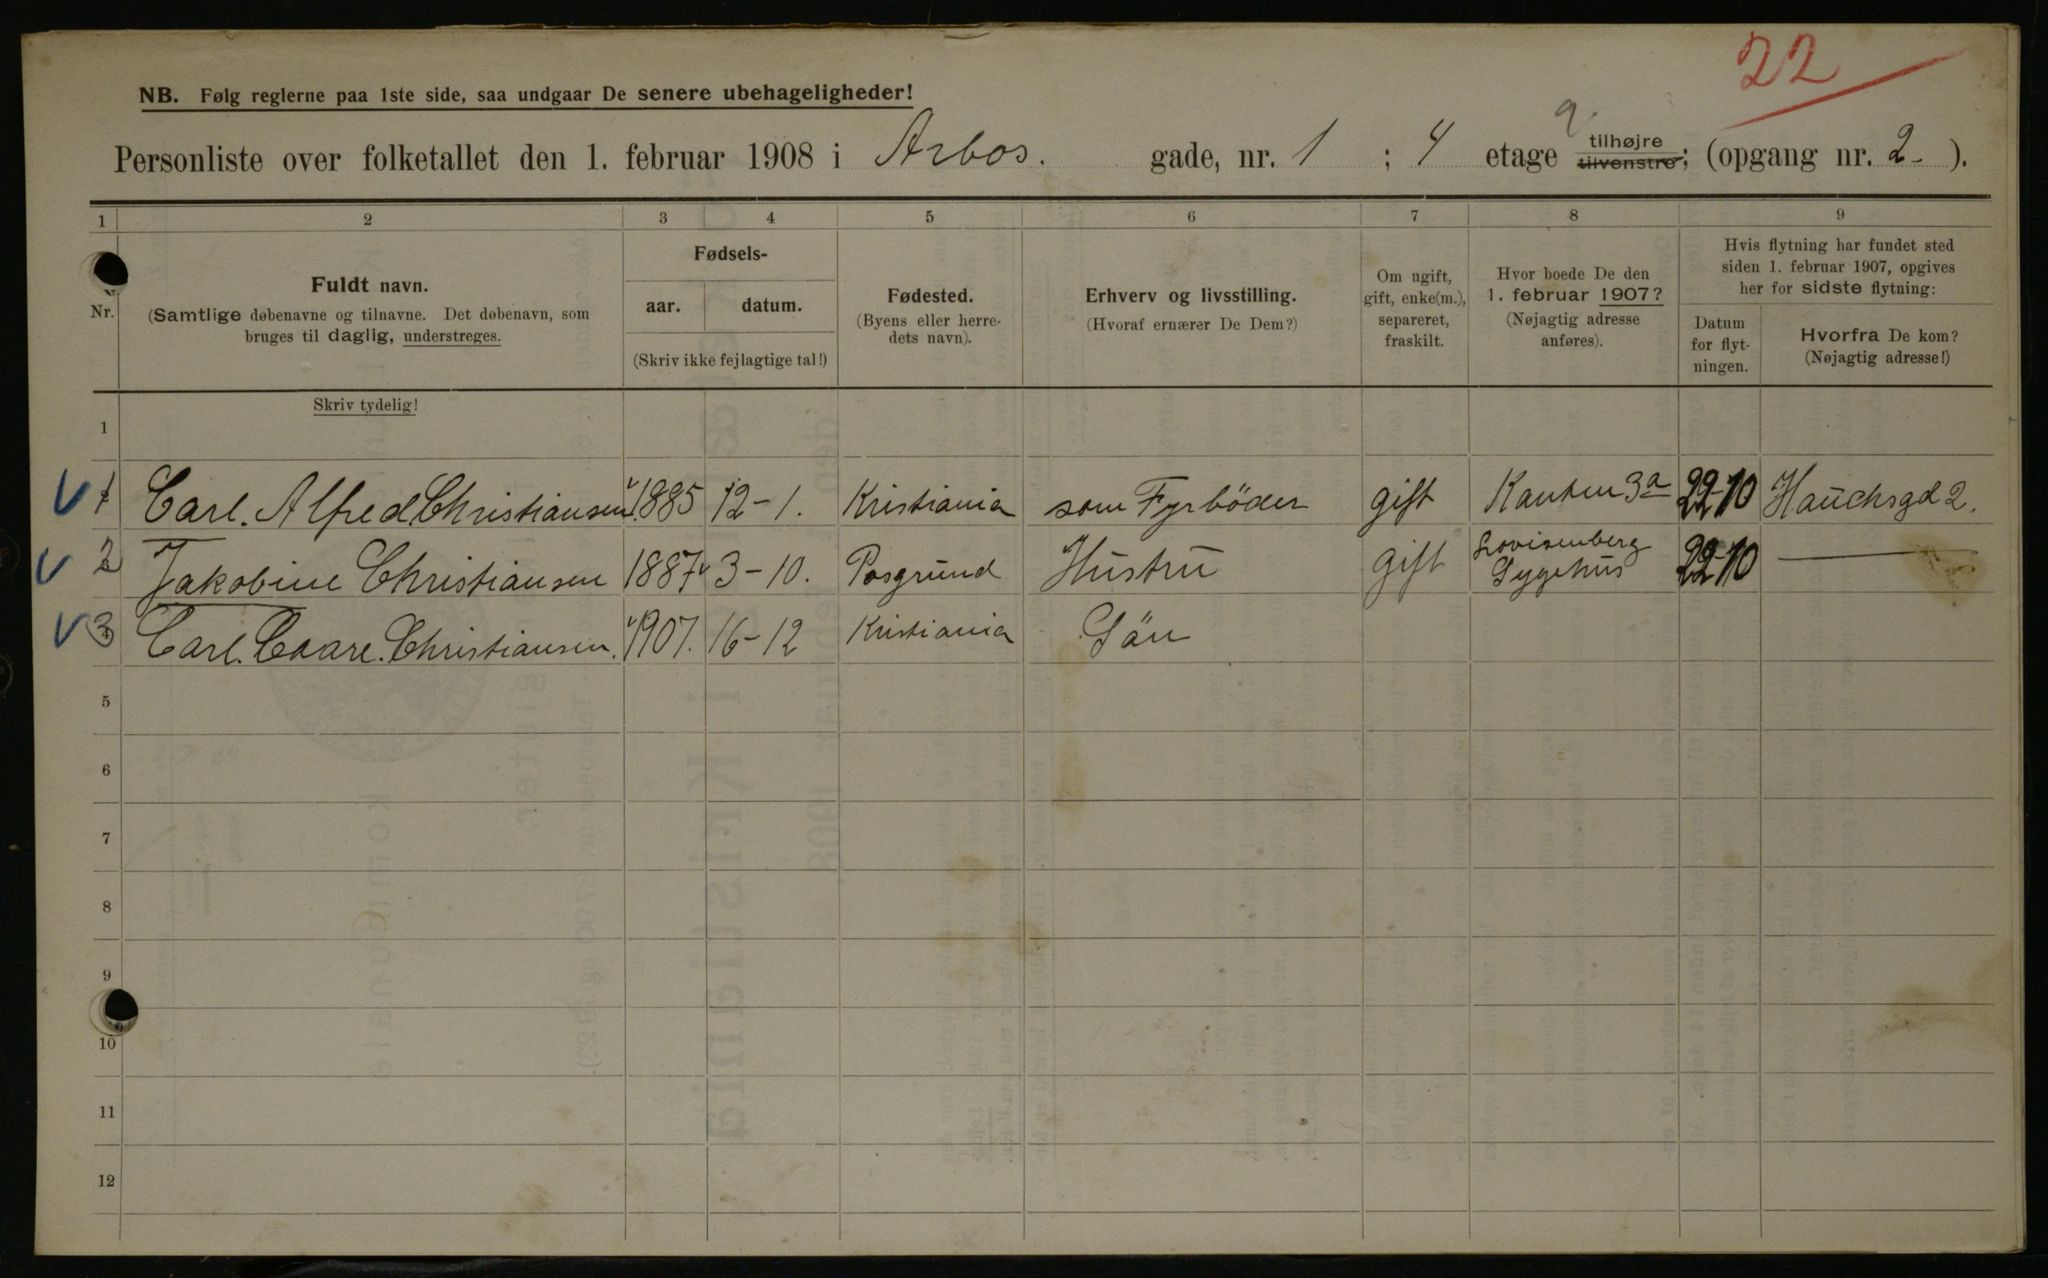 22
NB. Følg reglerne paa 1ste side, saa undgaar De senere ubehageligheder!
Personliste over folketallet den 1. februar 1908 i Arbos. gade, nr. 1 ; 4 etage tilhøjre tilvenstre; (opgang nr. 2 ).
1 2 3 4 5 6 7 8 9
Nr.
Fuldt navn.
(Samtlige døbenavne og tilnavne. Det døbenavn, som
bruges til daglig, understreges.
Fødsels-
aar. datum.
(Skriv ikke fejlagtige tal!)
Fødested.
(Byens eller herre-
dets navn).
Erhverv og livsstilling.
(Hvoraf ernærer De Dem?)
Om ugift,
gift, enke(m.),
separeret,
fraskilt.
Hvor boede De den
1. februar 1907?
(Nøjagtig adresse
anføres).
Hvis flytning har fundet sted
siden 1. februar 1907, opgives
her for sidste flytning:
Datum
for flyt-
ningen.
Hvorfra De kom?
(Nøjagtig adresse!)
Skriv tydelig!
1
1 Carl. Alfred Christiansen. 1885 12-1. Kristiania som Fyrböder gift 3a 22-10 Hauchsgd 2.
2 Jakobine Christiansen 1887 3-10. Posgrund Hustru gift Lovisenberg Sygehus 22-10 —
3 Carl. Caare. Christiansen. 1907. 16-12 Kristiania Sön
5
6
7
8
9
10
11
12